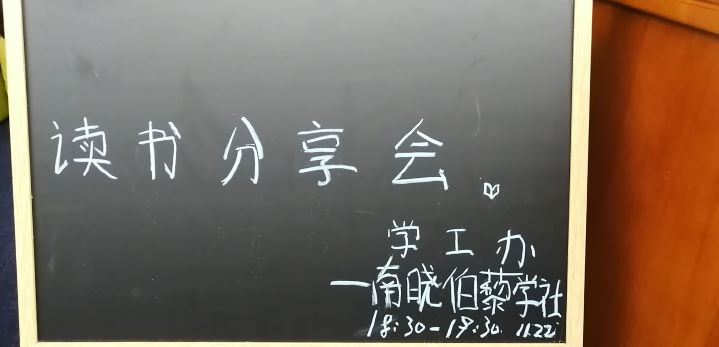 读书分享会。
学工办
一南晓伯藜学社
18:30-19:30 11.22